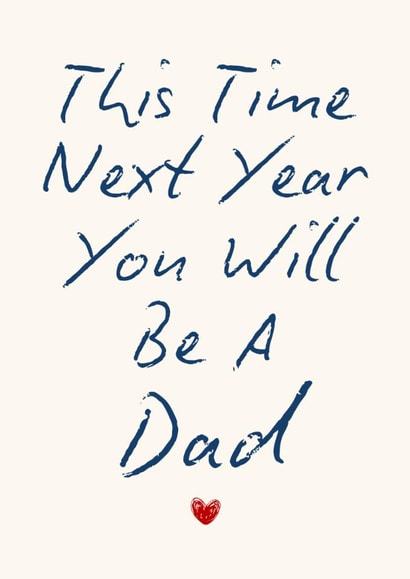 This Time
Next Year
You Will
Be A
Dad